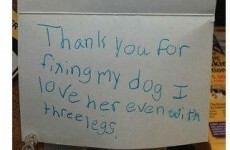 Thank you for
fixing my dog I
love her even with
three legs.